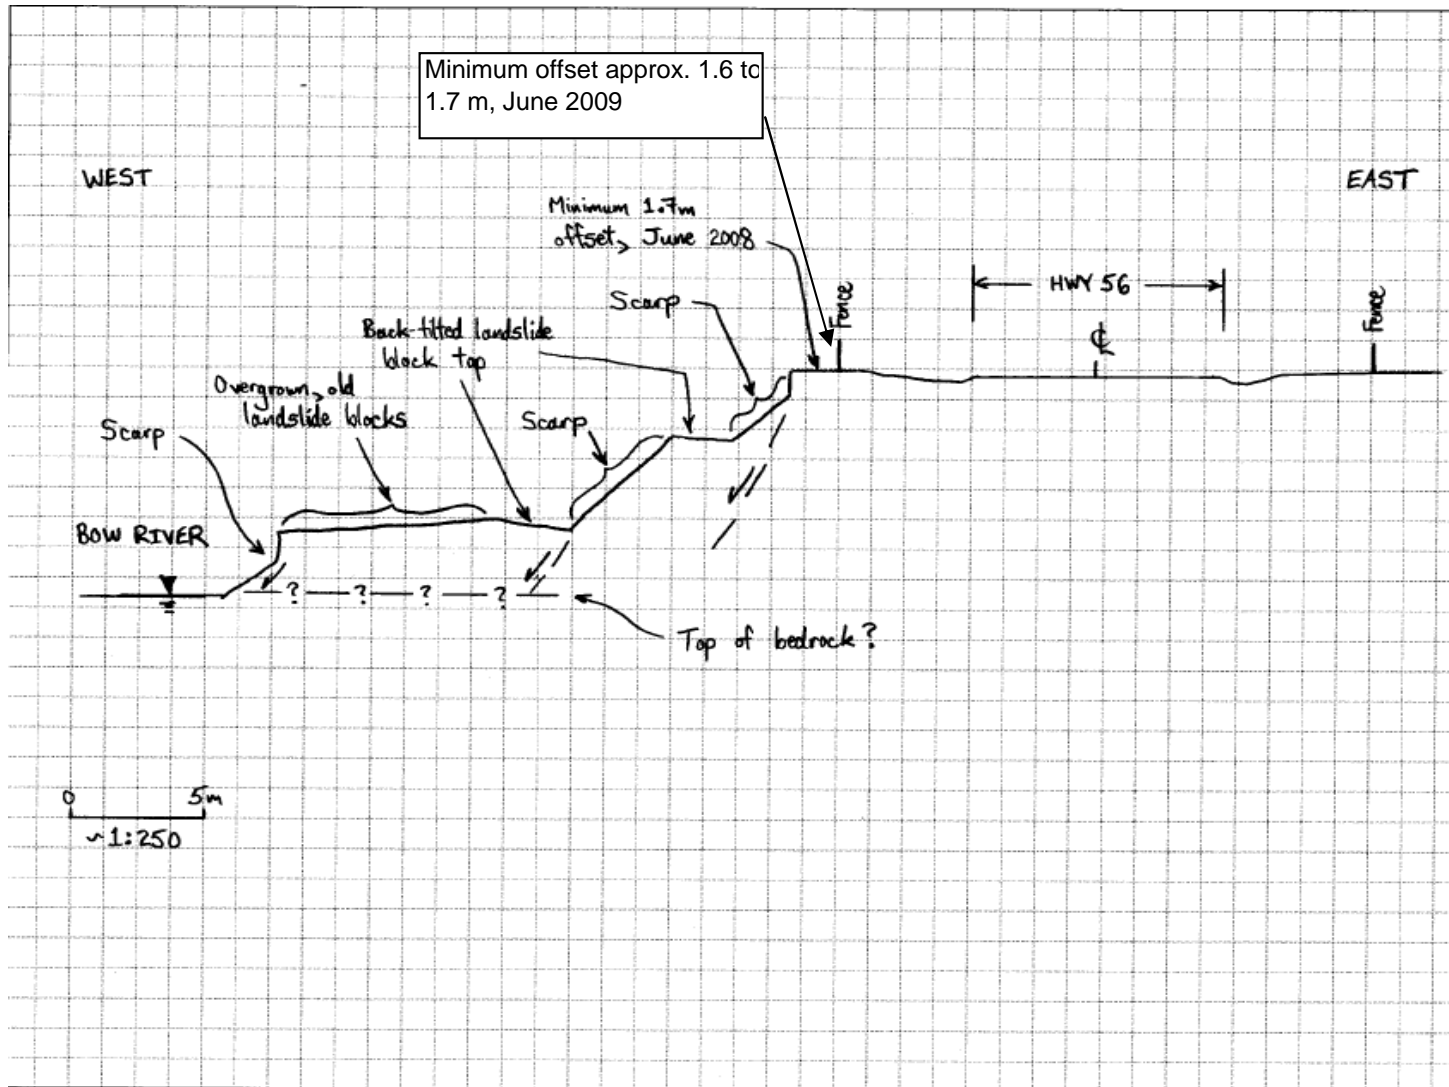 Minimum offset approx. 1.6 to
1.7 m, June 2009
WEST
EAST
Minimum 1.7m
offset, June 2008
HWY 56
Fence
Fence
℄
Scarp
Back-tilted landslide
block top
Overgrown, old
landslide blocks
Scarp
Scarp
BOW RIVER
? ? ? ?
Top of bedrock?
0 5m
~1:250